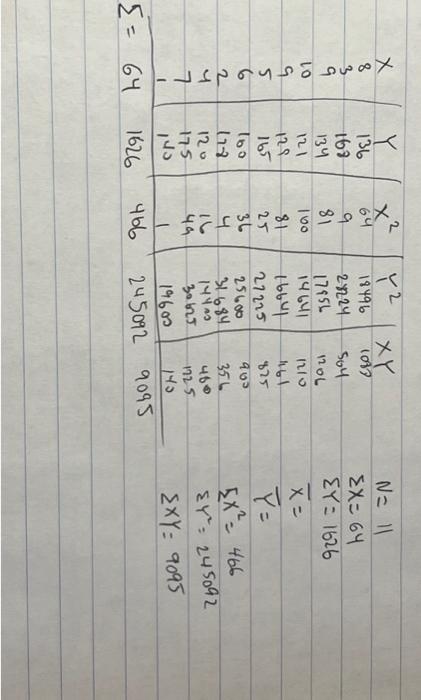 X Y X² Y² XY N = 11
8 136 64 18496 1088 ΣX = 64
3 168 9 28224 504 ΣY = 1626
9 134 81 17956 1206
10 121 100 14641 1210 X̄ =
9 129 81 16641 1161
5 165 25 27225 825 Ȳ =
6 160 36 25600 900
2 178 4 31684 356 ΣX² = 466
4 120 16 14400 480 ΣY² = 245092
7 175 49 30625 1225
1 140 1 19600 140 ΣXY = 9095
Σ = 64 1626 466 245092 9095